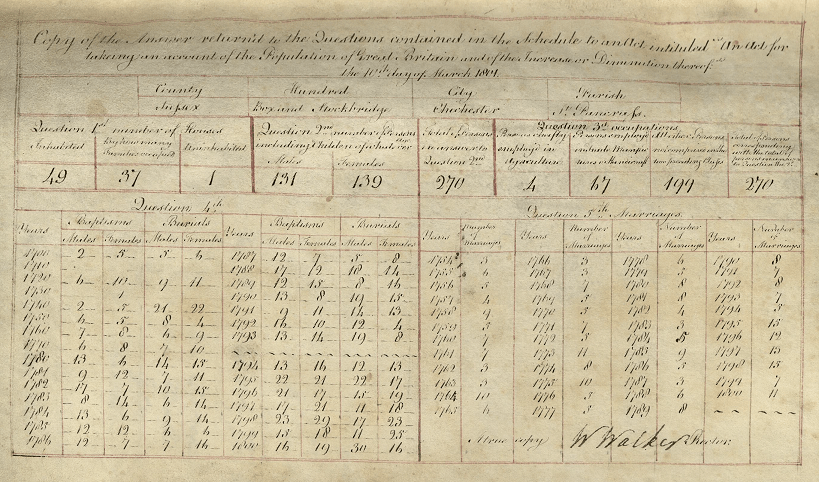 Copy of the Answer return'd to the Questions contained in the Schedule to an Act intituled "An Act for
taking an account of the Population of Great Britain and of the Increase or Diminution thereof"
the 10th day of March 1801
County Hundred City Parish
Sussex Box and Stockbridge Chichester St Pancrass
Question 1st number of Houses
Inhabited By how many Families occupied Uninhabited
Question 2nd number of Persons
including Children of whatever
Males Females
Total of Persons
in answer to
Question 2nd
Question 3d occupations
Persons chiefly
employed in
Agriculture
Persons employed
in trade Manufac
tures or Handicraft
All other Persons
not comprised in the
two preceding Classes
Total of Persons
corresponding
with the total of
persons in answer
to Question the 2d
49 37 1 131 139 270 4 67 199 270
Question 4th
Question 5th Marriages
Years Baptisms Burials Years Baptisms Burials
Males Females Males Females Males Females Males Females
Years Number of Marriages Years Number of Marriages Years Number of Marriages Years Number of Marriages
1700 2 5 5 6 1787 12 7 5 8
1710 1788 17 12 18 14
1720 6 10 9 11 1789 12 15 8 16
1730 1 1790 13 8 19 15
1740 2 5 21 22 1791 9 11 14 13
1750 6 5 8 4 1792 16 10 12 4
1760 7 8 6 9 1793 13 14 19 8
1770 6 8 7 10
1780 13 6 14 15 1794 13 16 12 13
1781 9 12 7 11 1795 22 21 22 17
1782 17 7 10 15 1796 21 17 15 19
1783 8 14 6 14 1797 17 21 11 18
1784 13 6 9 14 1798 23 29 17 23
1785 12 12 6 6 1799 15 18 11 25
1786 12 7 7 16 1800 16 19 30 16
1754 3 1766 3 1778 6 1790 8
1755 6 1767 3 1779 5 1791 7
1756 5 1768 7 1780 8 1792 8
1757 4 1769 5 1781 8 1793 7
1758 9 1770 5 1782 4 1794 5
1759 3 1771 7 1783 3 1795 15
1760 7 1772 5 1784 5 1796 12
1761 7 1773 11 1785 9 1797 13
1762 3 1774 8 1786 5 1798 15
1763 3 1775 10 1787 3 1799 7
1764 10 1776 5 1788 6 1800 11
1765 6 1777 5 1789 8
A true copy W Walker Rector